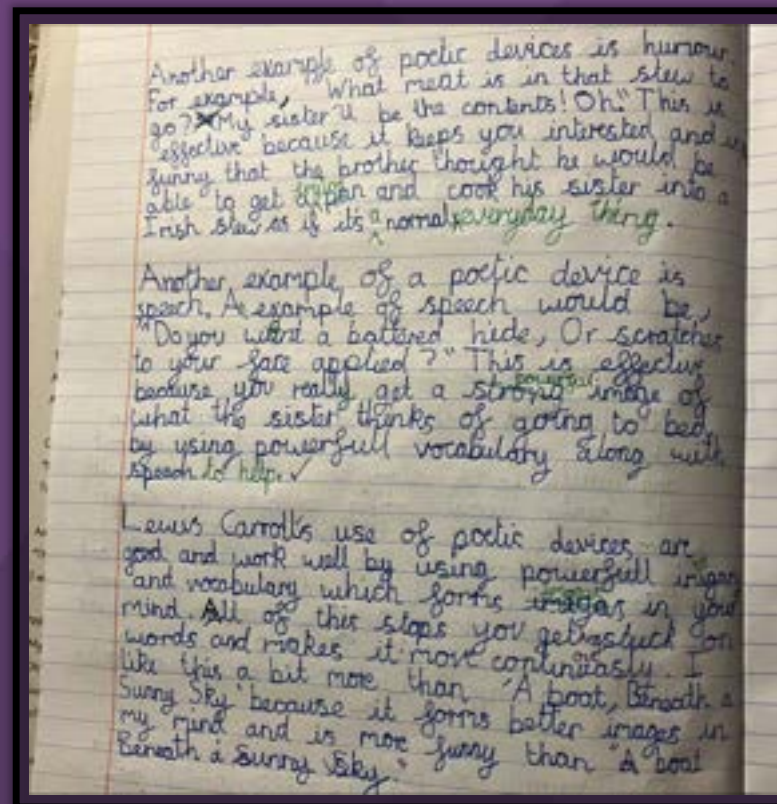 Another example of poetic devices is humour.
For example, "What meat is in that stew to
go? My sister'll be the contents! Oh." This is
effective because it keeps you interested and
funny that the brother thought he would be
able to get a pan and cook his sister into a
Irish stew as if its a normal everyday thing.
Another example of a poetic device is
speech. A example of speech would be,
"Do you want a battered hide, Or scratches
to your face applied?" This is effective
because you really get a strong image of
what the sister thinks of going to bed,
by using powerfull vocabulary along with
speech to help. ✓
Lewis Carroll's use of poetic devices are
good and work well by using powerfull
and vocabulary which forms in your
mind. All of this stops you stuck on
words and makes it move continuasly. I
like this a bit more than "A boat, Beneath a
Sunny Sky" because it forms better images in
my mind and is more funny than "A boat
Beneath a Sunny Sky."